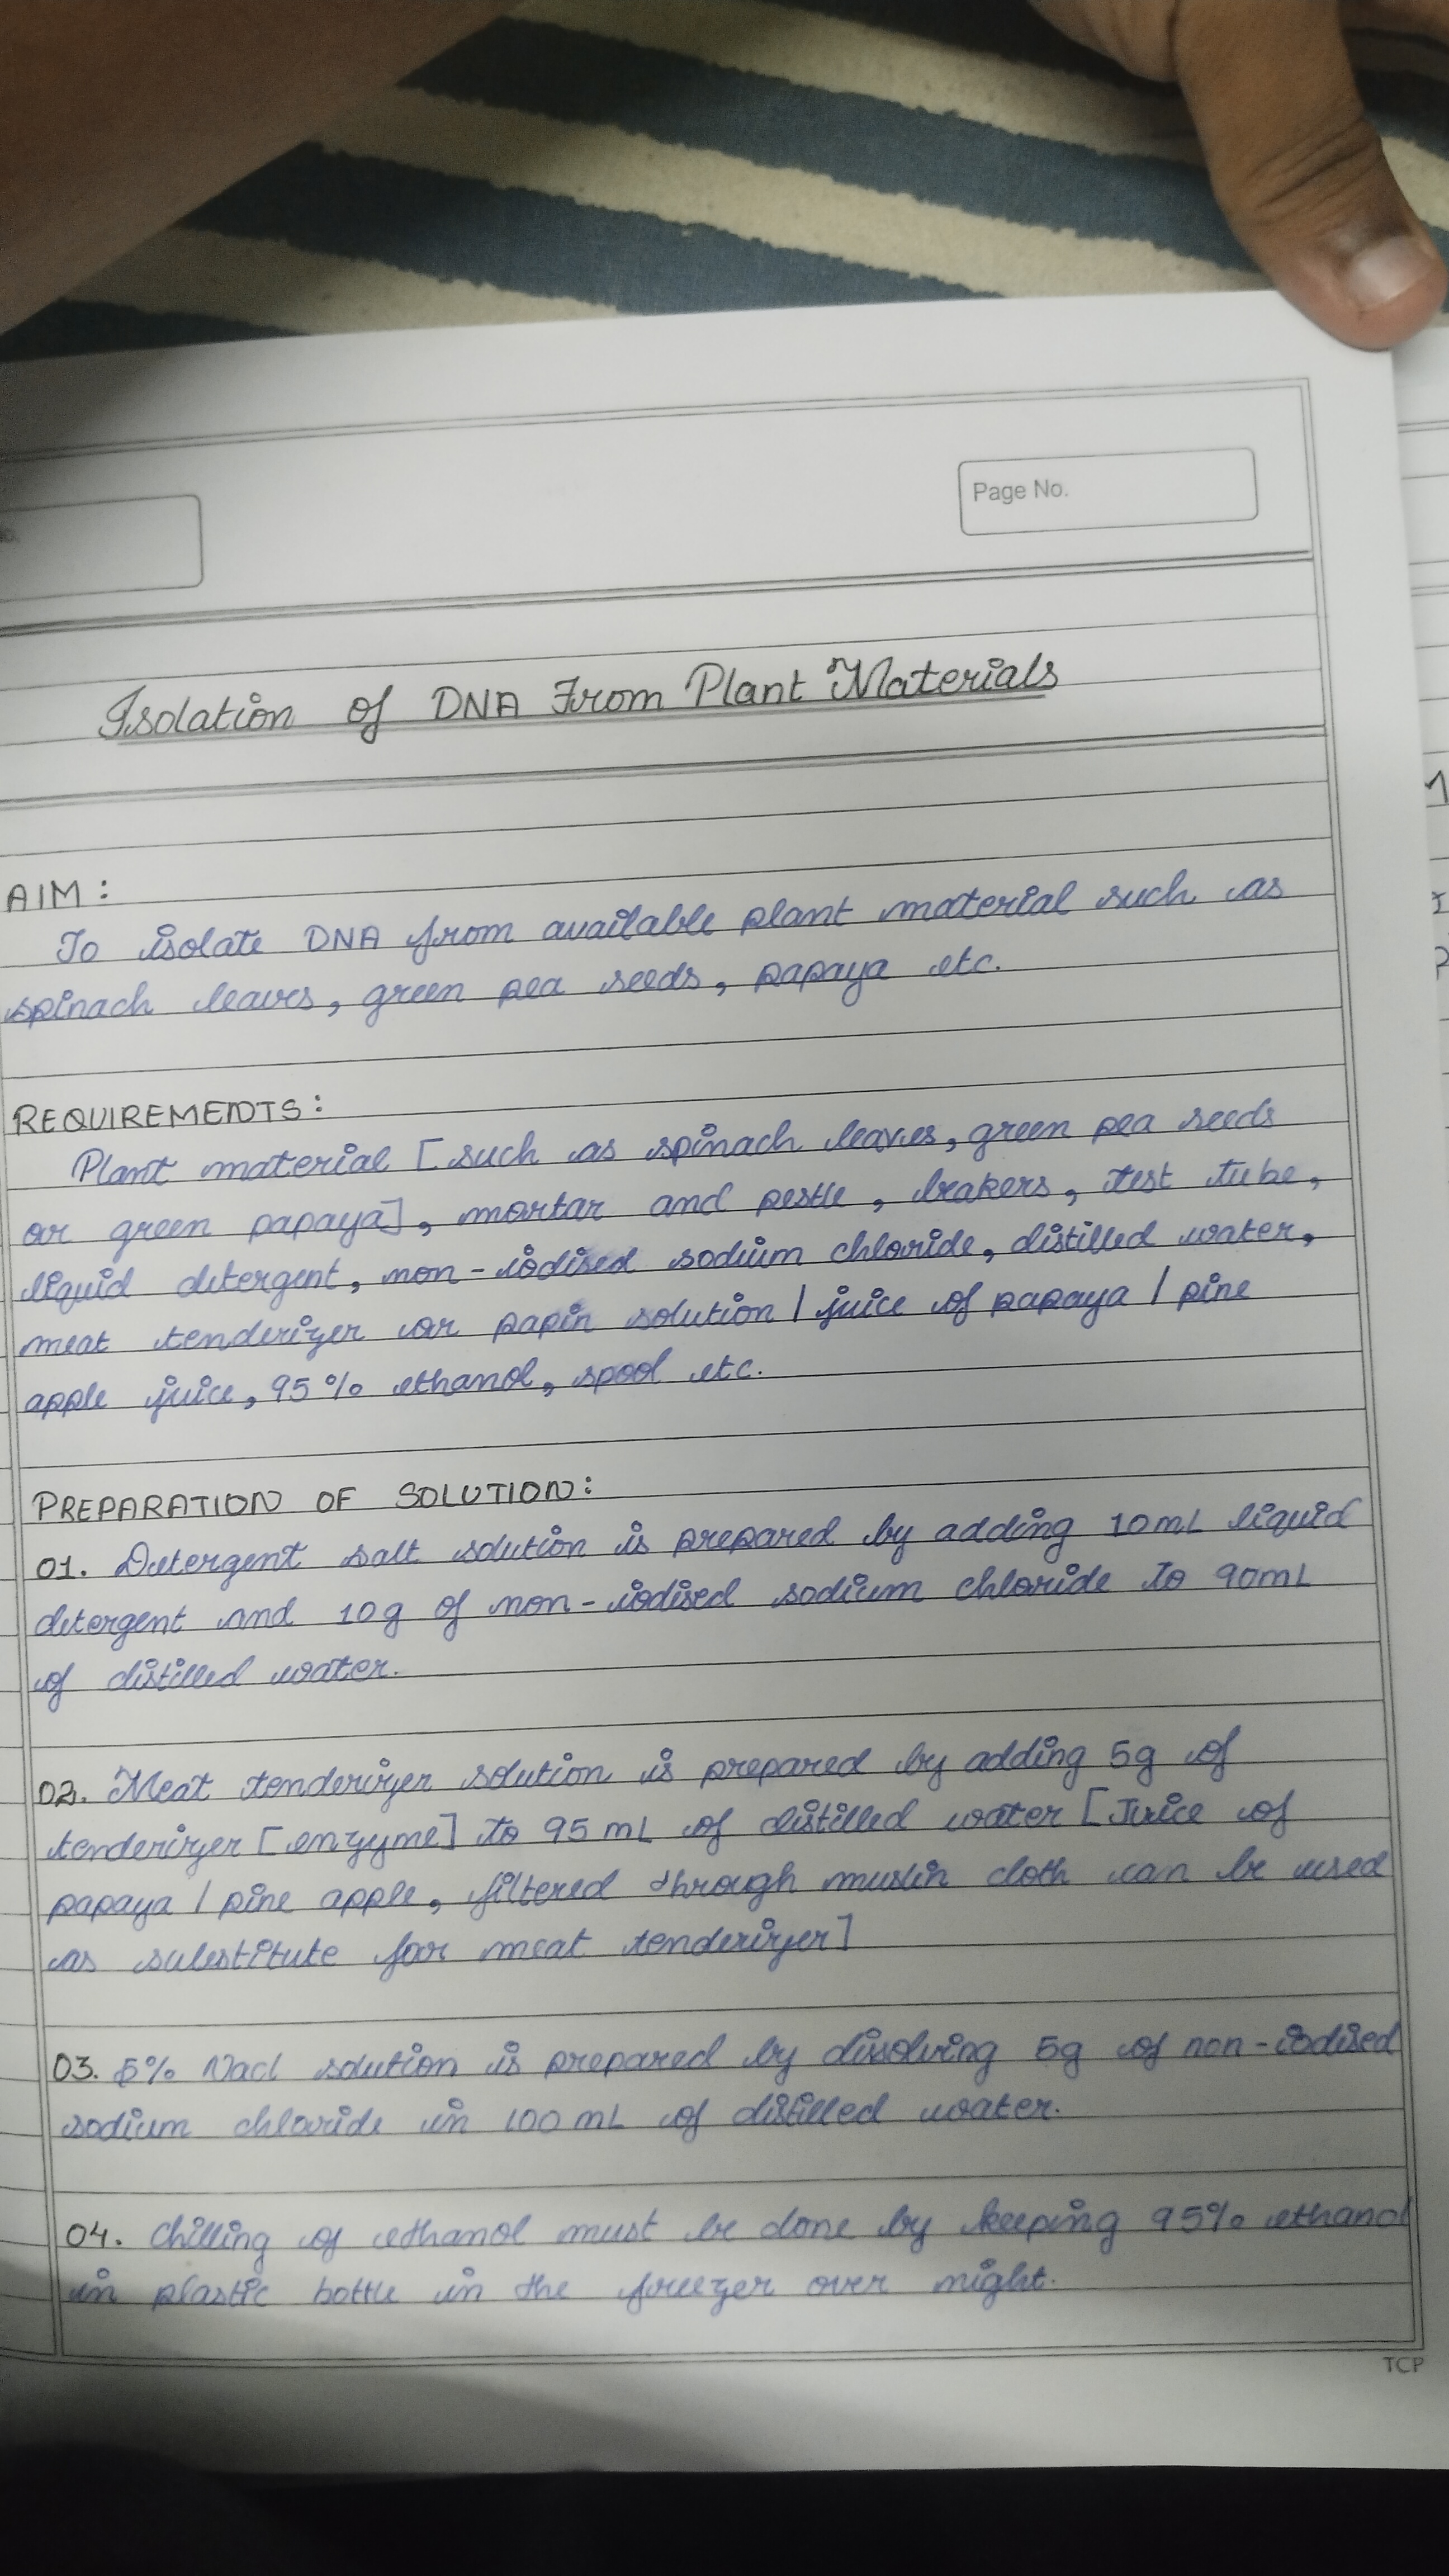 Page No.
Isolation of DNA From Plant Materials
AIM :
To isolate DNA from available plant material such as
spinach leaves, green pea seeds, papaya etc.
REQUIREMENTS :
Plant material [such as spinach leaves, green pea seeds
or green papaya], mortar and pestle, beakers, test tube,
liquid detergent, non-iodised sodium chloride, distilled water,
meat tenderizer or papin solution / juice of papaya / pine
apple juice, 95% ethanol, spool etc.
PREPARATION OF SOLUTION :
01. Detergent salt solution is prepared by adding 10mL liquid
detergent and 10g of non-iodised sodium chloride to 90mL
of distilled water.
02. Meat tenderizer solution is prepared by adding 5g of
tenderizer [enzyme] to 95 mL of distilled water [Juice of
papaya / pine apple, filtered through muslin cloth can be used
as substitute for meat tenderizer]
03. 5% Nacl solution is prepared by dissolving 5g of non-iodised
sodium chloride in 100 mL of distilled water.
04. Chilling of ethanol must be done by keeping 95% ethanol
in plastic bottle in the freezer over night.
TCP